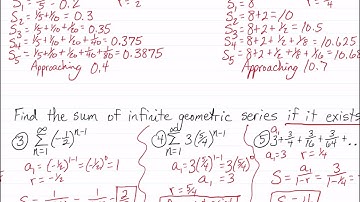 S₁ = 1/5 = 0.2
S₂ = 1/5 + 1/10 = 0.3
S₃ = 1/5 + 1/10 + 1/20 = 0.35
S₄ = 1/5 + 1/10 + 1/20 + 1/40 = 0.375
S₅ = 1/5 + 1/10 + 1/20 + 1/40 + 1/80 = 0.3875
Approaching 0.4
S₁ = 8
S₂ = 8 + 2 = 10
S₃ = 8 + 2 + 1/2 = 10.5
S₄ = 8 + 2 + 1/2 + 1/8 = 10.625
S₅ = 8 + 2 + 1/2 + 1/8 +
Approaching 10.7
Find the sum of infinite geometric series if it exists
③ ∞ Σ n=1 (-1/2)ⁿ⁻¹
a₁ = (-1/2)¹⁻¹ = (-1/2)⁰ = 1
r = -1/2
④ ∞ Σ n=1 3(5/4)ⁿ⁻¹
a₁ = 3(5/4)¹⁻¹ 3(5/4)⁰
a₁ = 3
r = 5/4
⑤ 3 + 3/4 + 3/16 + 3/64 + ...
a₁ = 3 r = 1/4
S = a₁/1-r = 3/1-1/4 =